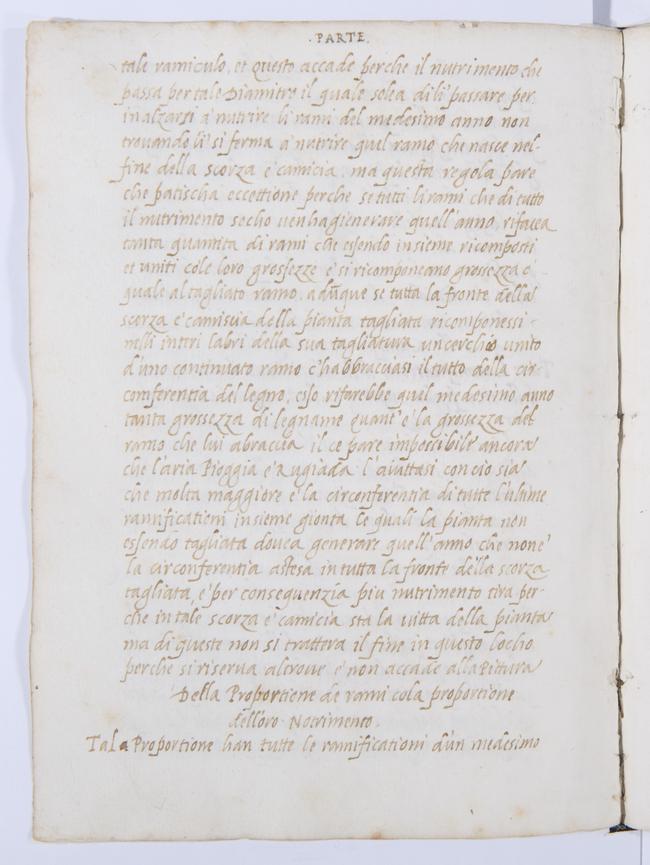 .PARTE.
tale ramiculo, et questo accade perche il nutrimento che
passa per tale Diamitro il quale solea di li passare per
inalzarsi a nutrire li rami del medesimo anno non
trovando li si ferma a nutrire quel ramo che nasce nel-
fine della scorza e camicia. ma questa regola pare
che patischa eccettione perche se tutti li rami che di tutto
il nutrimento secho venha gienerare quell'anno rifacea
tanta quantita di rami che essendo insieme ricomposti
et uniti cole loro grossezze e si ricomponeano grossezza e-
quale al tagliato ramo. adunque se tutta la fronte della
scorza e camisia della pianta tagliata ricomponessi
nelli intri labri della sua tagliatura un cerchio unito
d'uno continuato ramo c'habbracciasi il tutto della cir-
comferentia del legno, esso rifarebbe quel medesimo anno
tanta grossezza di legname quant'e la grossezza del
ramo che lui abraccia il ce pare impossibile ancora
che l'aria Pioggia e Rugiada l'aiuttasi con cio sia
che molta maggiore e la circonferentia di tutte l'ultime
ramificationi insieme gionta le quali la pianta non
essendo tagliata dovea generare quell'anno che none
la circonferentia astesa in tutta la fronte della scorza
tagliata, e per conseguenzia piu nutrimento tira per-
che in tale scorza e camicia sta la vitta della pianta
ma di queste non si trattera il fine in questo locho
perche si riserva altrove e non accade alla Pittura
Della Proportione de rami cola proportione
dell'oro Notrimento.
Tala Proportione han tutte le ramificationi d'un medesimo